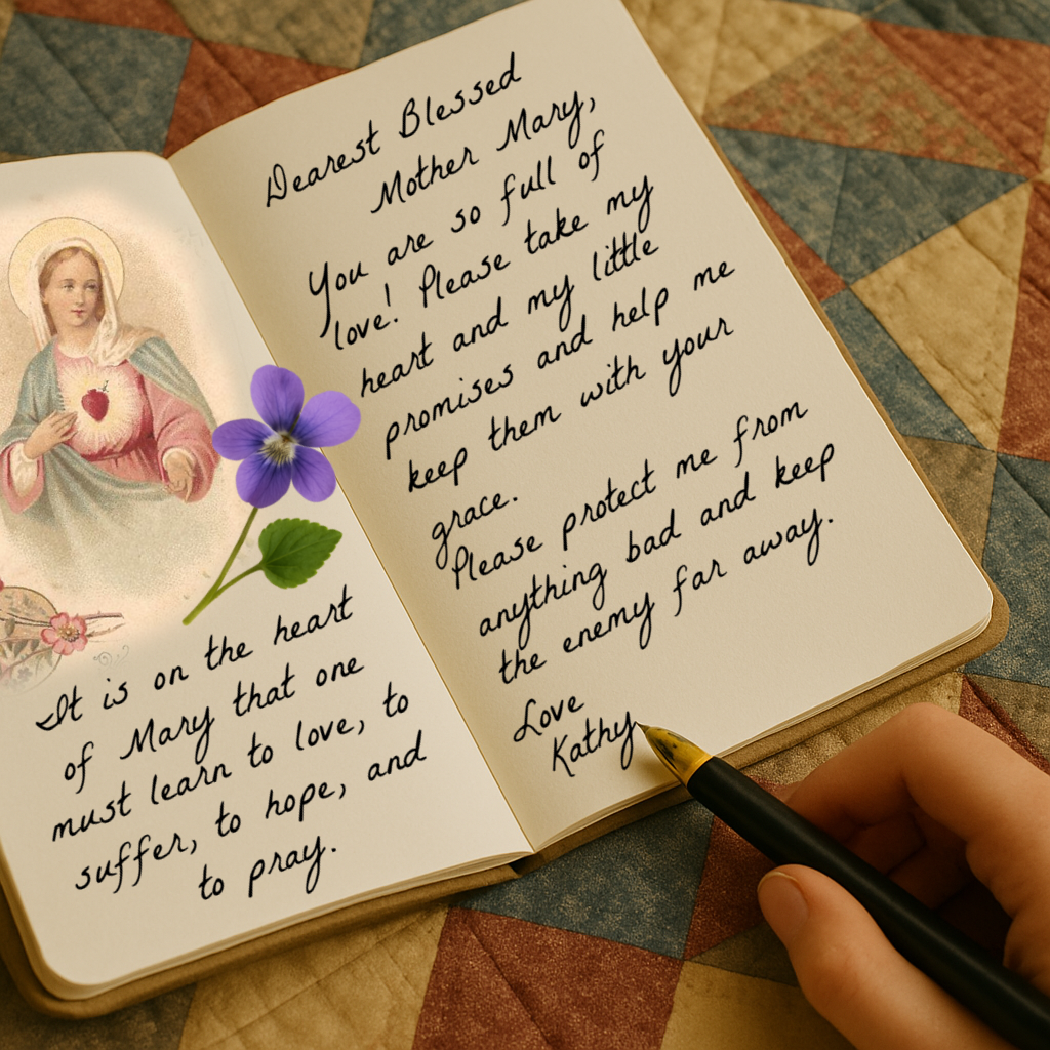 It is on the heart
of Mary that one
must learn to love, to
suffer, to hope, and
to pray.
Dearest Blessed
Mother Mary,
You are so full of
love! Please take my
heart and my little
promises and help me
keep them with your
grace.
Please protect me from
anything bad and keep
the enemy far away.
Love
Kathy